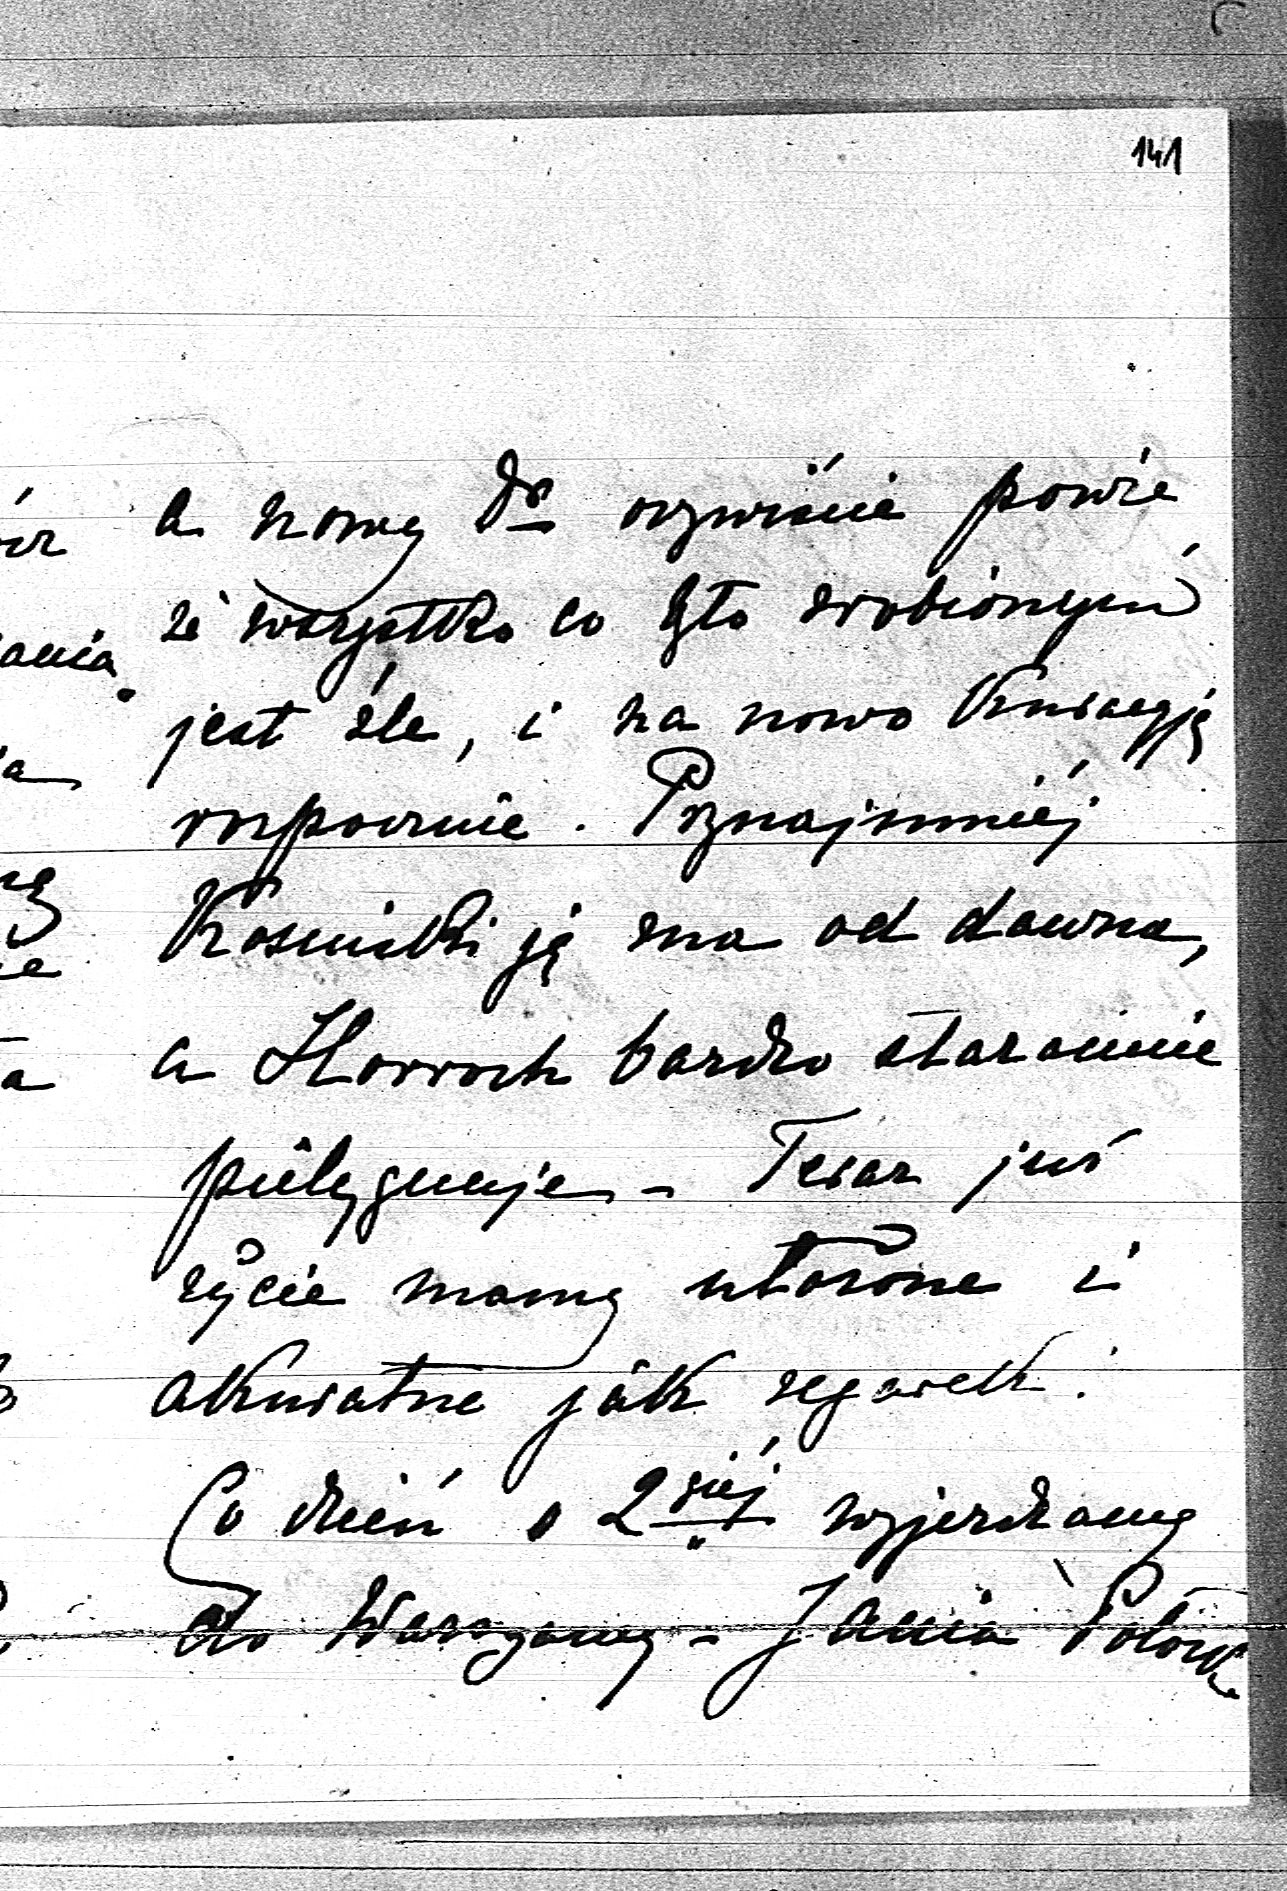 141
a nowy dr oczywiście powie
że wszystko co było zrobionym
jest źle, i na nowo kuracyję
rozpocznie. Przynajmniéj
Kosiński ją zna od dawna,
a Horroch bardzo starannie
pielęgnuje – Teraz już
życie mamy ułożone i
akuratne jak zegarek.
Co dzień o 2giéj wyjeżdżamy
do Warszawy – Jania Potock